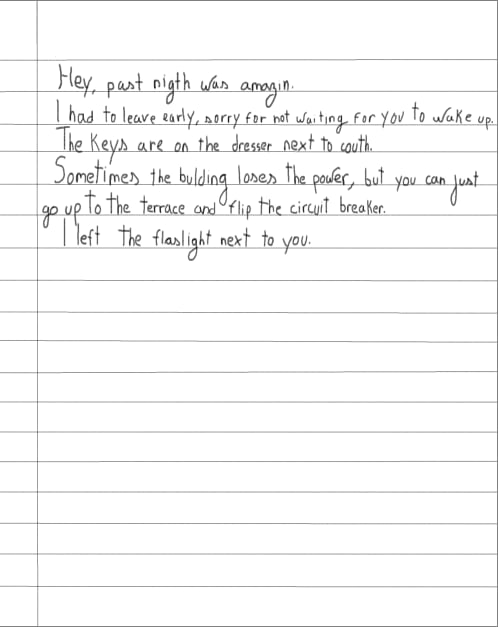 Hey, past nigth was amazin.
I had to leave early, sorry for not waiting for you to wake up.
The Keys are on the dresser next to couth.
Sometimes the bulding loses the power, but you can just
go up to the terrace and flip the circuit breaker.
I left the flaslight next to you.